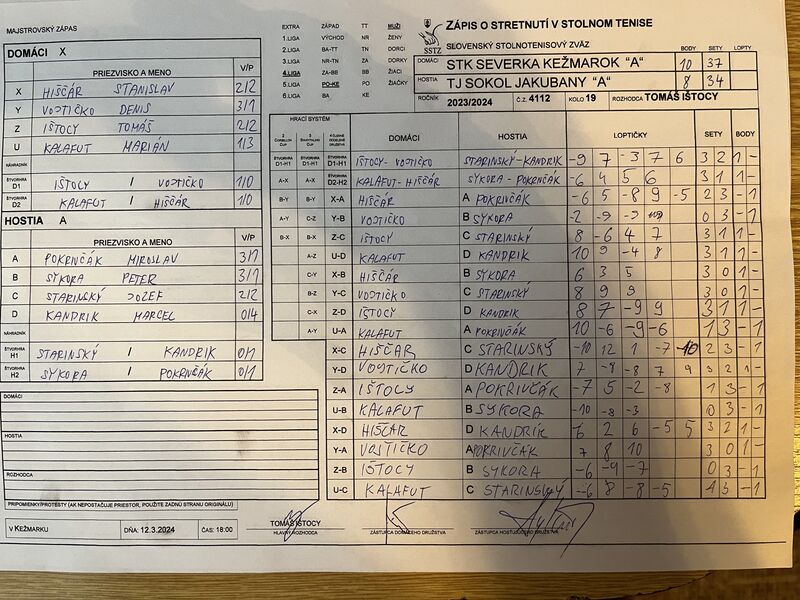 MAJSTROVSKÝ ZÁPAS
EXTRA ZÁPAD TT MUŽI
1.LIGA VÝCHOD NR ŽENY
2.LIGA BA-TT TN DORCI
3.LIGA NR-TN ZA DORKY
4.LIGA ZA-BB BB ŽIACI
5.LIGA PO-KE PO ŽIAČKY
6.LIGA BA KE
SSTZ
ZÁPIS O STRETNUTÍ V STOLNOM TENISE
SLOVENSKÝ STOLNOTENISOVÝ ZVÄZ
BODY SETY LOPTY
DOMÁCI STK SEVERKA KEŽMAROK "A" 10 37
HOSTIA TJ SOKOL JAKUBANY "A" 8 34
ROČNÍK 2023/2024 Č.Z. 4112 KOLO 19 ROZHODCA TOMÁŠ IŠTOCY
DOMÁCI X
PRIEZVISKO A MENO V/P
X HIŠČÁR STANISLAV 2/2
Y VOJTIČKO DENIS 3/1
Z IŠTOCY TOMÁŠ 2/2
U KALAFUT MARIÁN 1/3
NÁHRADNÍK
ŠTVORHRA D1 IŠTOCY / VOJTIČKO 1/0
ŠTVORHRA D2 KALAFUT / HIŠČÁR 1/0
HOSTIA A
PRIEZVISKO A MENO V/P
A POKRIVČÁK MIROSLAV 3/1
B SYKORA PETER 3/1
C STARINSKÝ JOZEF 2/2
D KANDRIK MARCEL 0/4
NÁHRADNÍK
ŠTVORHRA H1 STARINSKÝ / KANDRIK 0/1
ŠTVORHRA H2 SYKORA / POKRIVČÁK 0/1
DOMÁCI
HOSTIA
ROZHODCA
PRIPOMIENKY/PROTESTY (AK NEPOSTAČUJE PRIESTOR, POUŽITE ZADNÚ STRANU ORIGINÁLU)
HRACÍ SYSTÉM
DOMÁCI HOSTIA LOPTIČKY SETY BODY
ŠTVORHRA D1-H1 ŠTVORHRA D1-H1 ŠTVORHRA D1-H1 IŠTOCY-VOJTIČKO STARINSKÝ-KANDRIK -9 7 -3 7 6 3 2 1 -
A-X A-X ŠTVORHRA D2-H2 KALAFUT-HIŠČÁR SYKORA-POKRIVČÁK -6 4 5 6 3 1 1 -
B-Y B-Y X-A HIŠČÁR A POKRIVČÁK -6 5 -8 9 -5 2 3 - 1
A-Y C-Z Y-B VOJTIČKO B SYKORA -2 -9 -3 0 3 - 1
B-X B-X Z-C IŠTOCY C STARINSKÝ 8 -6 4 7 3 1 1 -
A-Z U-D KALAFUT D KANDRIK 10 9 -4 8 3 1 1 -
C-Y X-B HIŠČÁR B SYKORA 6 3 5 3 0 1 -
B-Z Y-C VOJTIČKO C STARINSKÝ 8 9 9 3 0 1 -
C-X Z-D IŠTOCY D KANDRIK 8 7 -9 9 3 1 1 -
A-Y U-A KALAFUT A POKRIVČÁK 10 -6 -9 -6 1 3 - 1
X-C HIŠČAR C STARINSKÝ -10 12 1 -7 -10 2 3 - 1
Y-D VOJTIČKO D KANDRIK 7 -8 -8 7 9 3 2 1 -
Z-A IŠTOCY A POKRIVČÁK -7 5 -2 -8 1 3 - 1
U-B KALAFUT B SYKORA -10 -8 -3 0 3 - 1
X-D HIŠČAR D KANDRIK 6 2 6 -5 5 3 2 1 -
Y-A VOJTIČKO A POKRIVČÁK 7 8 10 3 0 1 -
Z-B IŠTOCY B SYKORA -6 -9 -7 0 3 - 1
U-C KALAFUT C STARINSKÝ -6 8 -8 -5 3 - 1
V KEŽMARKU DŇA: 12.3.2024 ČAS: 18:00
TOMÁŠ IŠTOCY
HLAVNÝ ROZHODCA ZÁSTUPCA DOMÁCEHO DRUŽSTVA ZÁSTUPCA HOSŤUJÚCEHO DRUŽSTVA